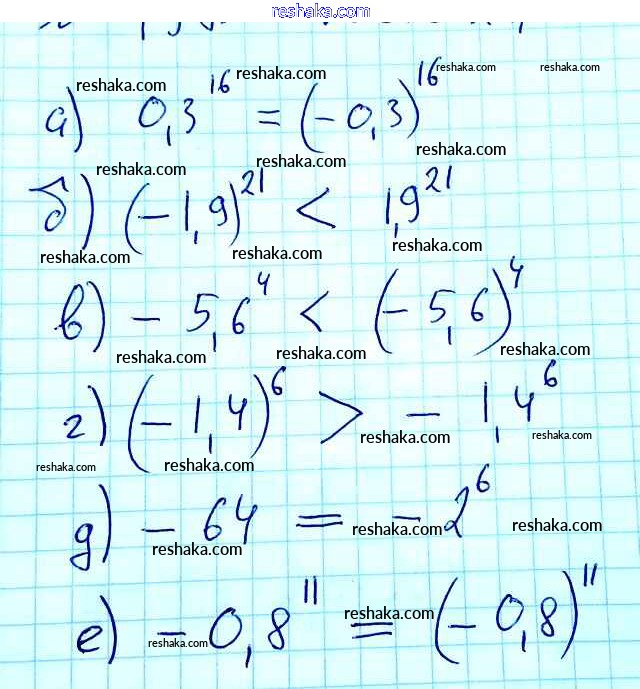 reshaka.com
reshaka.com reshaka.com reshaka.com reshaka.com
а) 0,3^16 = (-0,3)^16
reshaka.com reshaka.com reshaka.com
б) (-1,9)^21 < 1,9^21
reshaka.com reshaka.com reshaka.com
в) -5,6^4 < (-5,6)^4
reshaka.com reshaka.com reshaka.com
г) (-1,4)^6 > -1,4^6
reshaka.com reshaka.com reshaka.com reshaka.com
д) -64 = -2^6
reshaka.com reshaka.com reshaka.com
е) -0,8^11 = (-0,8)^11
reshaka.com reshaka.com